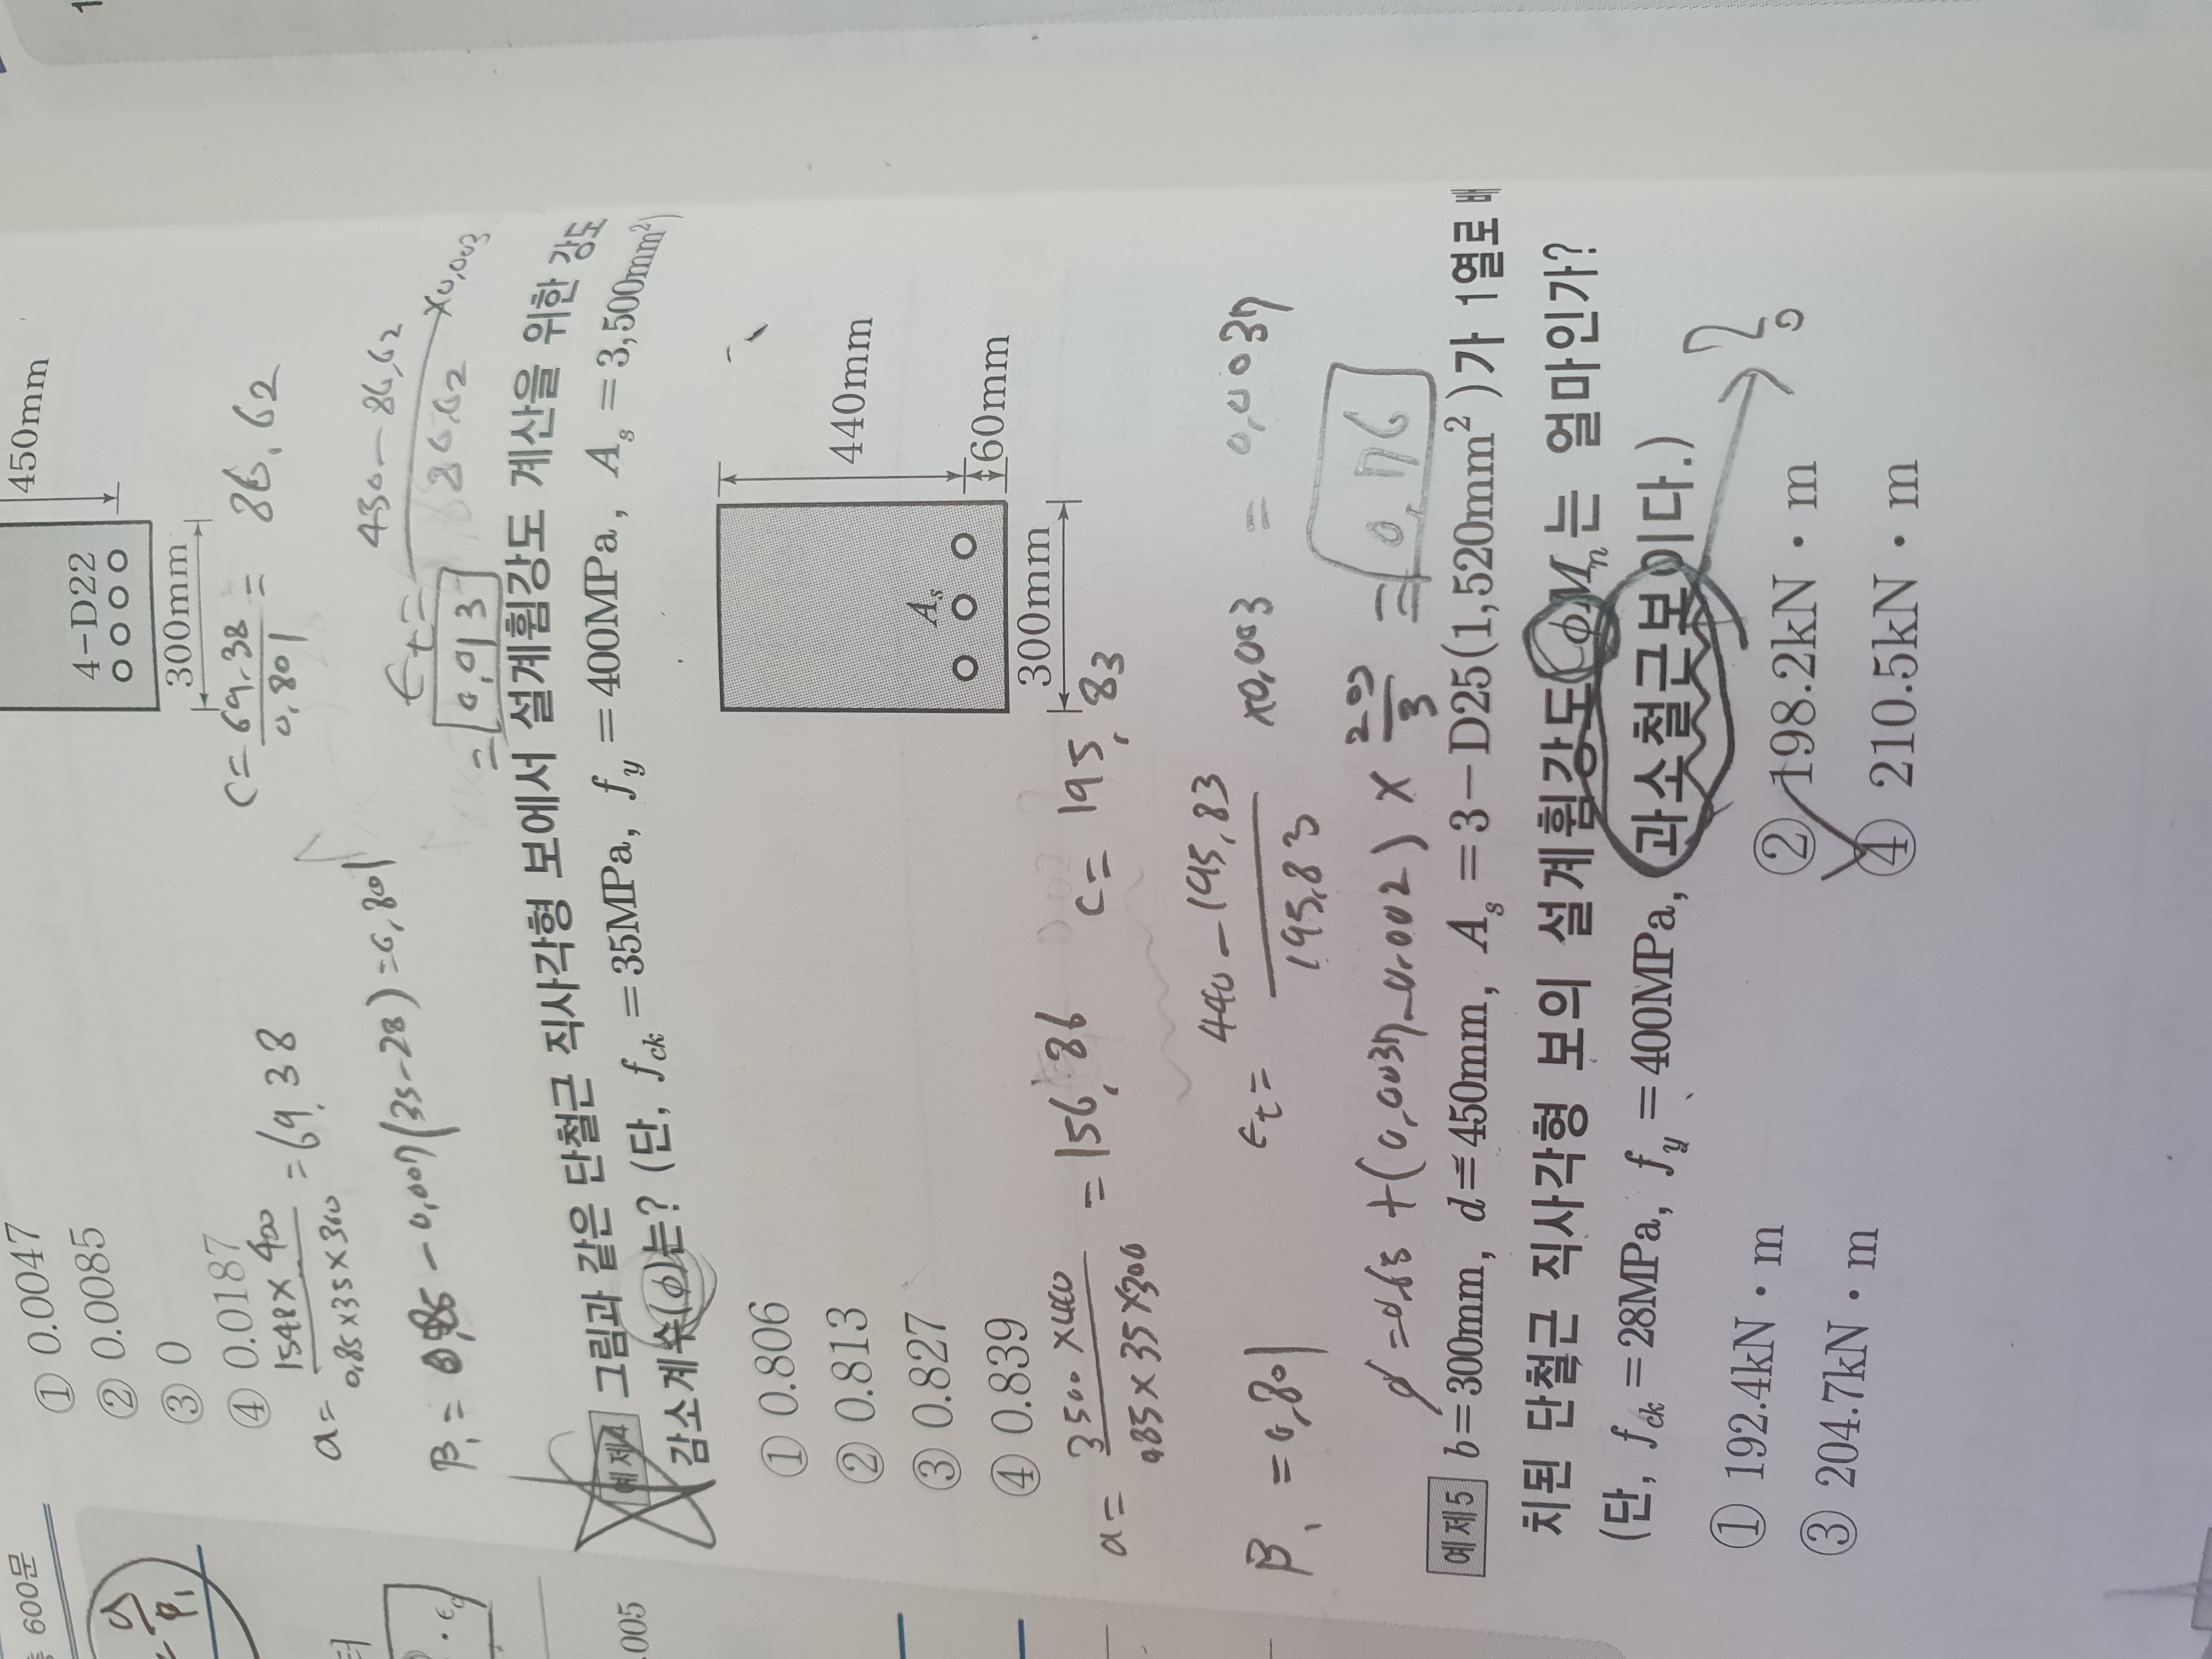 600문
450mm
4-D22
300mm
① 0.0047
② 0.0085
③ 0
④ 0.0187
a= 1548×400 / 0.85×35×300 = 69.38
c= 69.38 / 0.801 = 86.62
β₁= 0.85 - 0.007(35-28) = 0.801
εt= 450-86.62 / 86.62 ×0.003
= 0.013
예제4 그림과 같은 단철근 직사각형 보에서 설계휨강도 계산을 위한 강도
감소계수(ϕ)는? (단, fck=35MPa, fy=400MPa, As=3,500mm²)
① 0.806
② 0.813
③ 0.827
④ 0.839
As
440mm
60mm
300mm
a= 3500×400 / 0.85×35×300 = 156.86
c= 195.83
β₁=0.801
εt= 440-195.83 / 195.83 ×0.003 = 0.0037
ϕ=0.65+(0.0037-0.002)× 200/3 = 0.76
예제5 b=300mm, d=450mm, As=3-D25(1,520mm²)가 1열로 배
치된 단철근 직사각형 보의 설계휨강도 ϕMn는 얼마인가?
(단, fck=28MPa, fy=400MPa, 과소철근보이다.)
?
① 192.4kN·m
② 198.2kN·m
③ 204.7kN·m
④ 210.5kN·m
.005